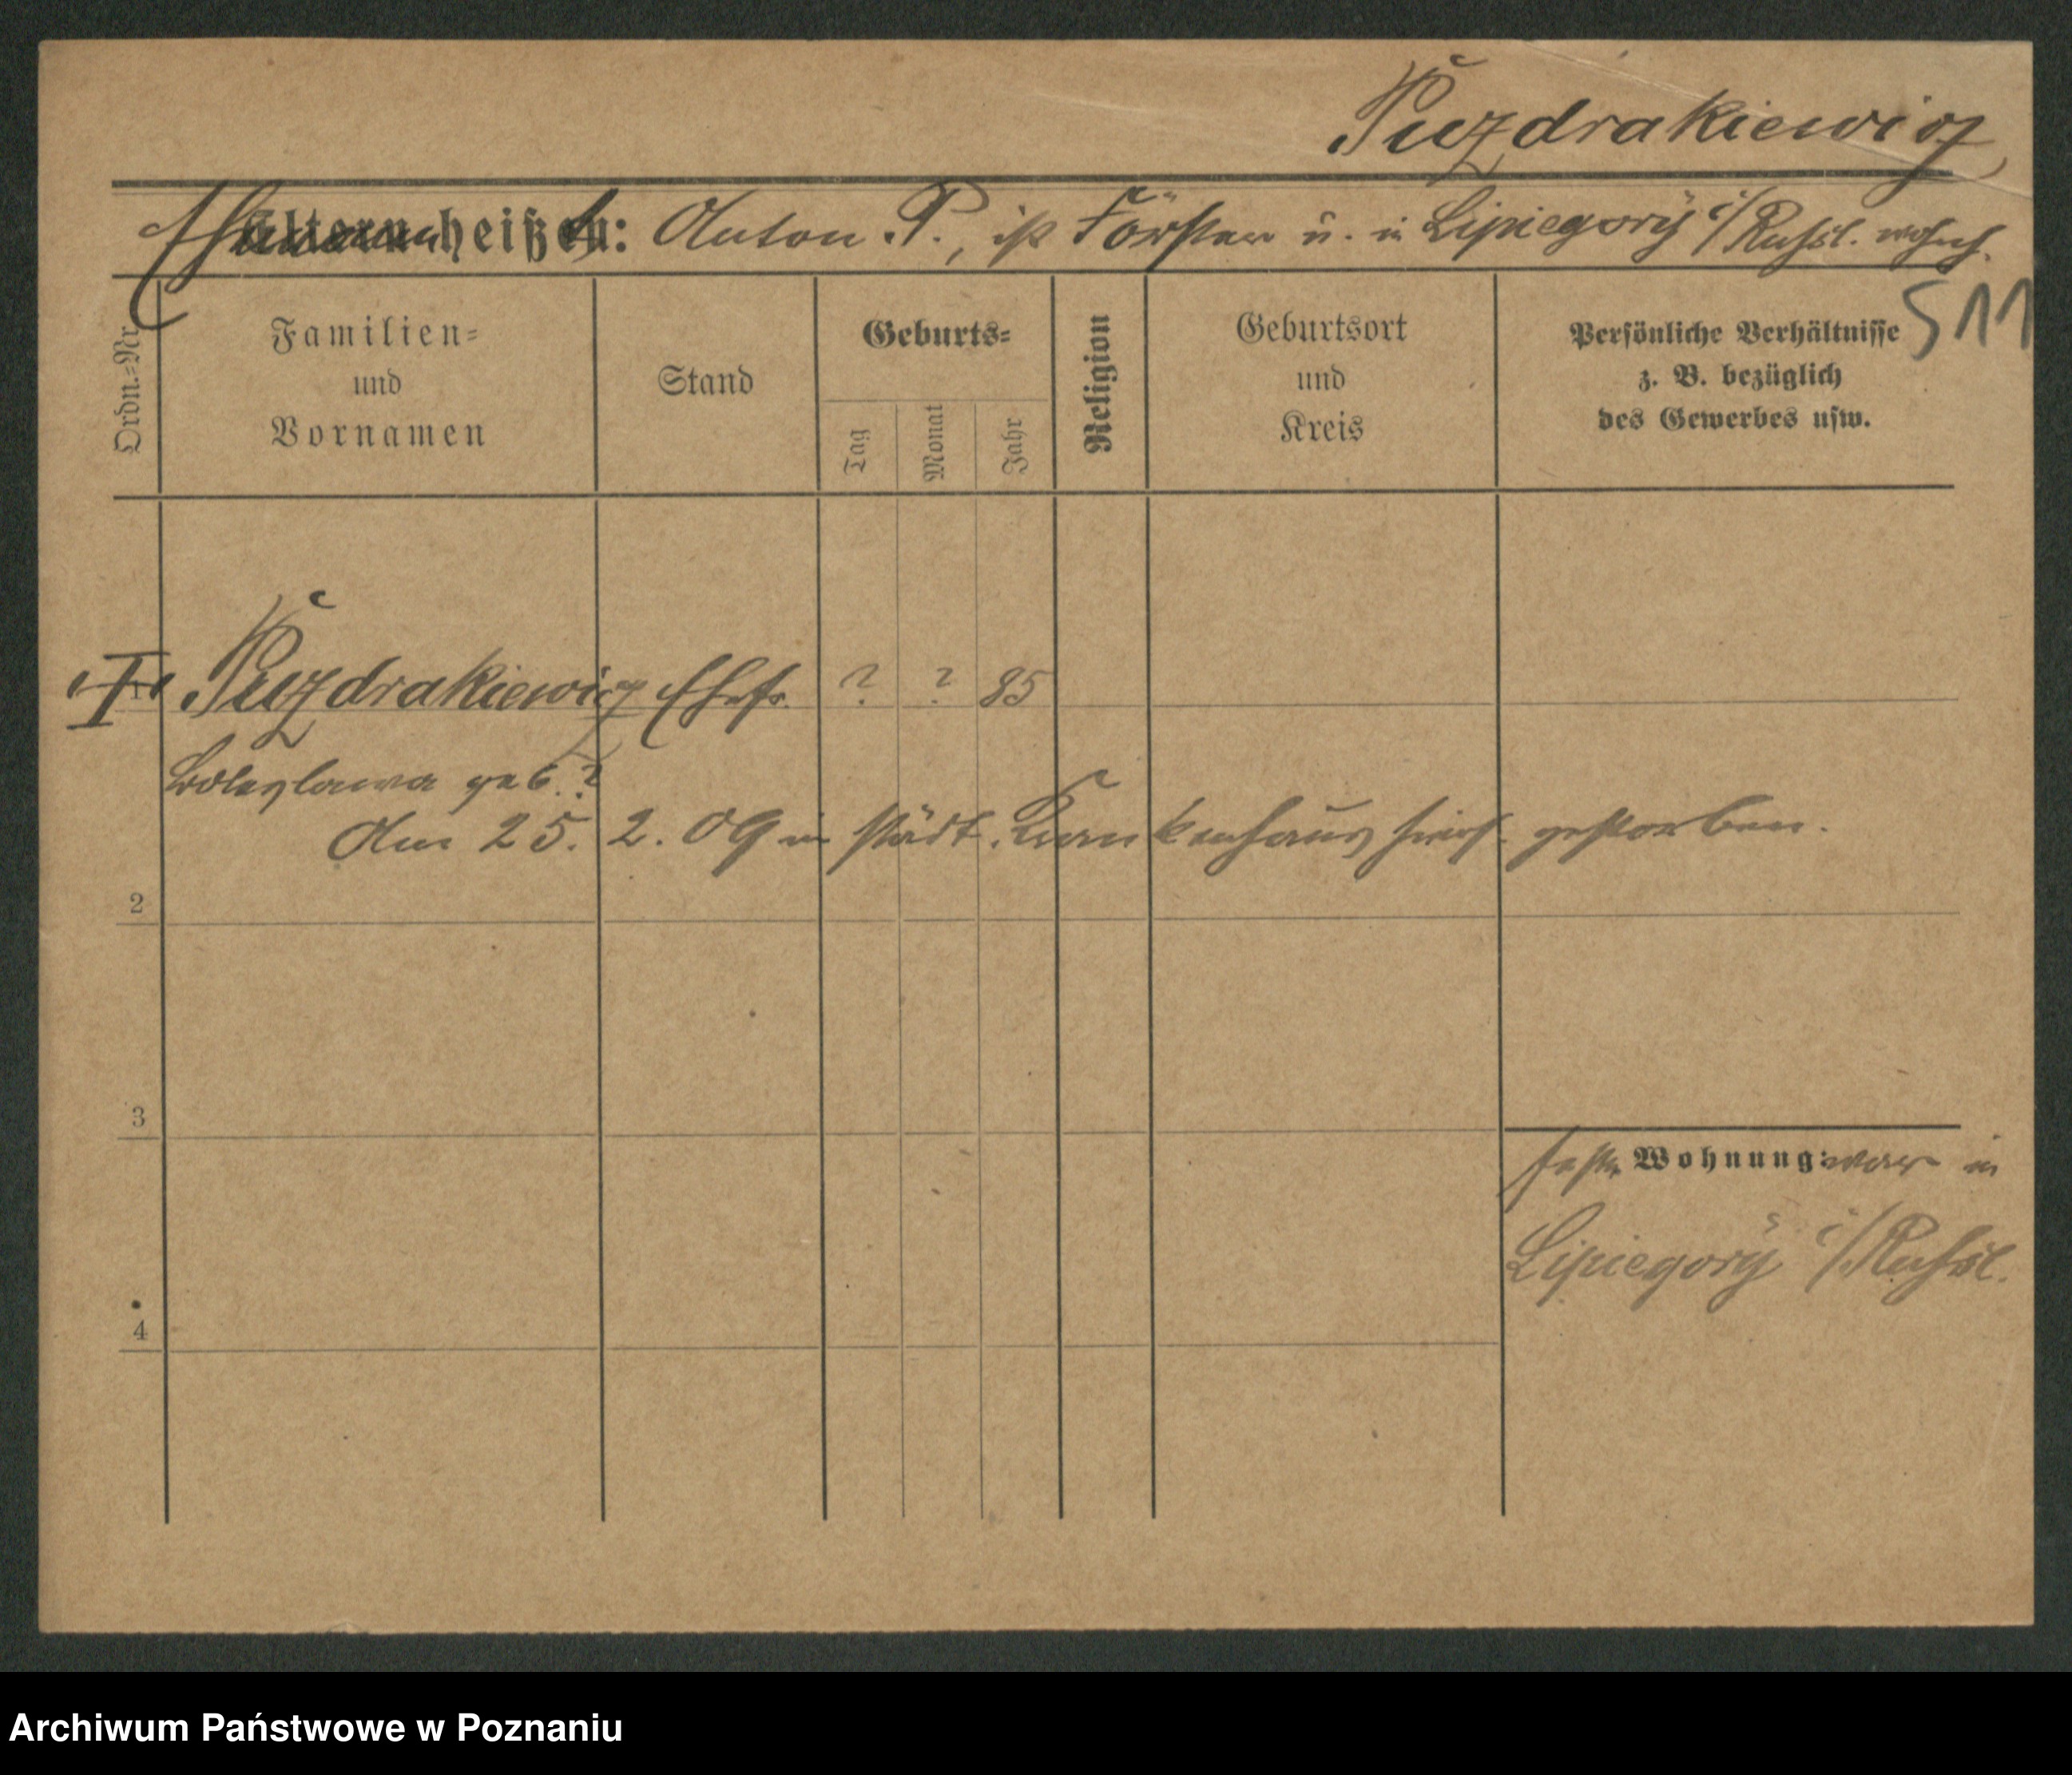 Puzdrakiewicz
Ehemann heißt: Anton P., ist Förster u. in Lipiegory i/Russl. wohnh.
511
Ordn.-Nr.
Familien-
und
Vornamen
Stand
Geburts-
Tag
Monat
Jahr
Religion
Geburtsort
und
Kreis
Persönliche Verhältnisse
z. B. bezüglich
des Gewerbes usw.
1 Puzdrakiewicz Ehefr. ? ? 85
Boleslawa geb. ?
Am 25. 2. 09 im städt. Krankenhaus hies. gestorben.
2
3
feste Wohnung: war in
Lipiegory i/Russl.
4
Archiwum Państwowe w Poznaniu